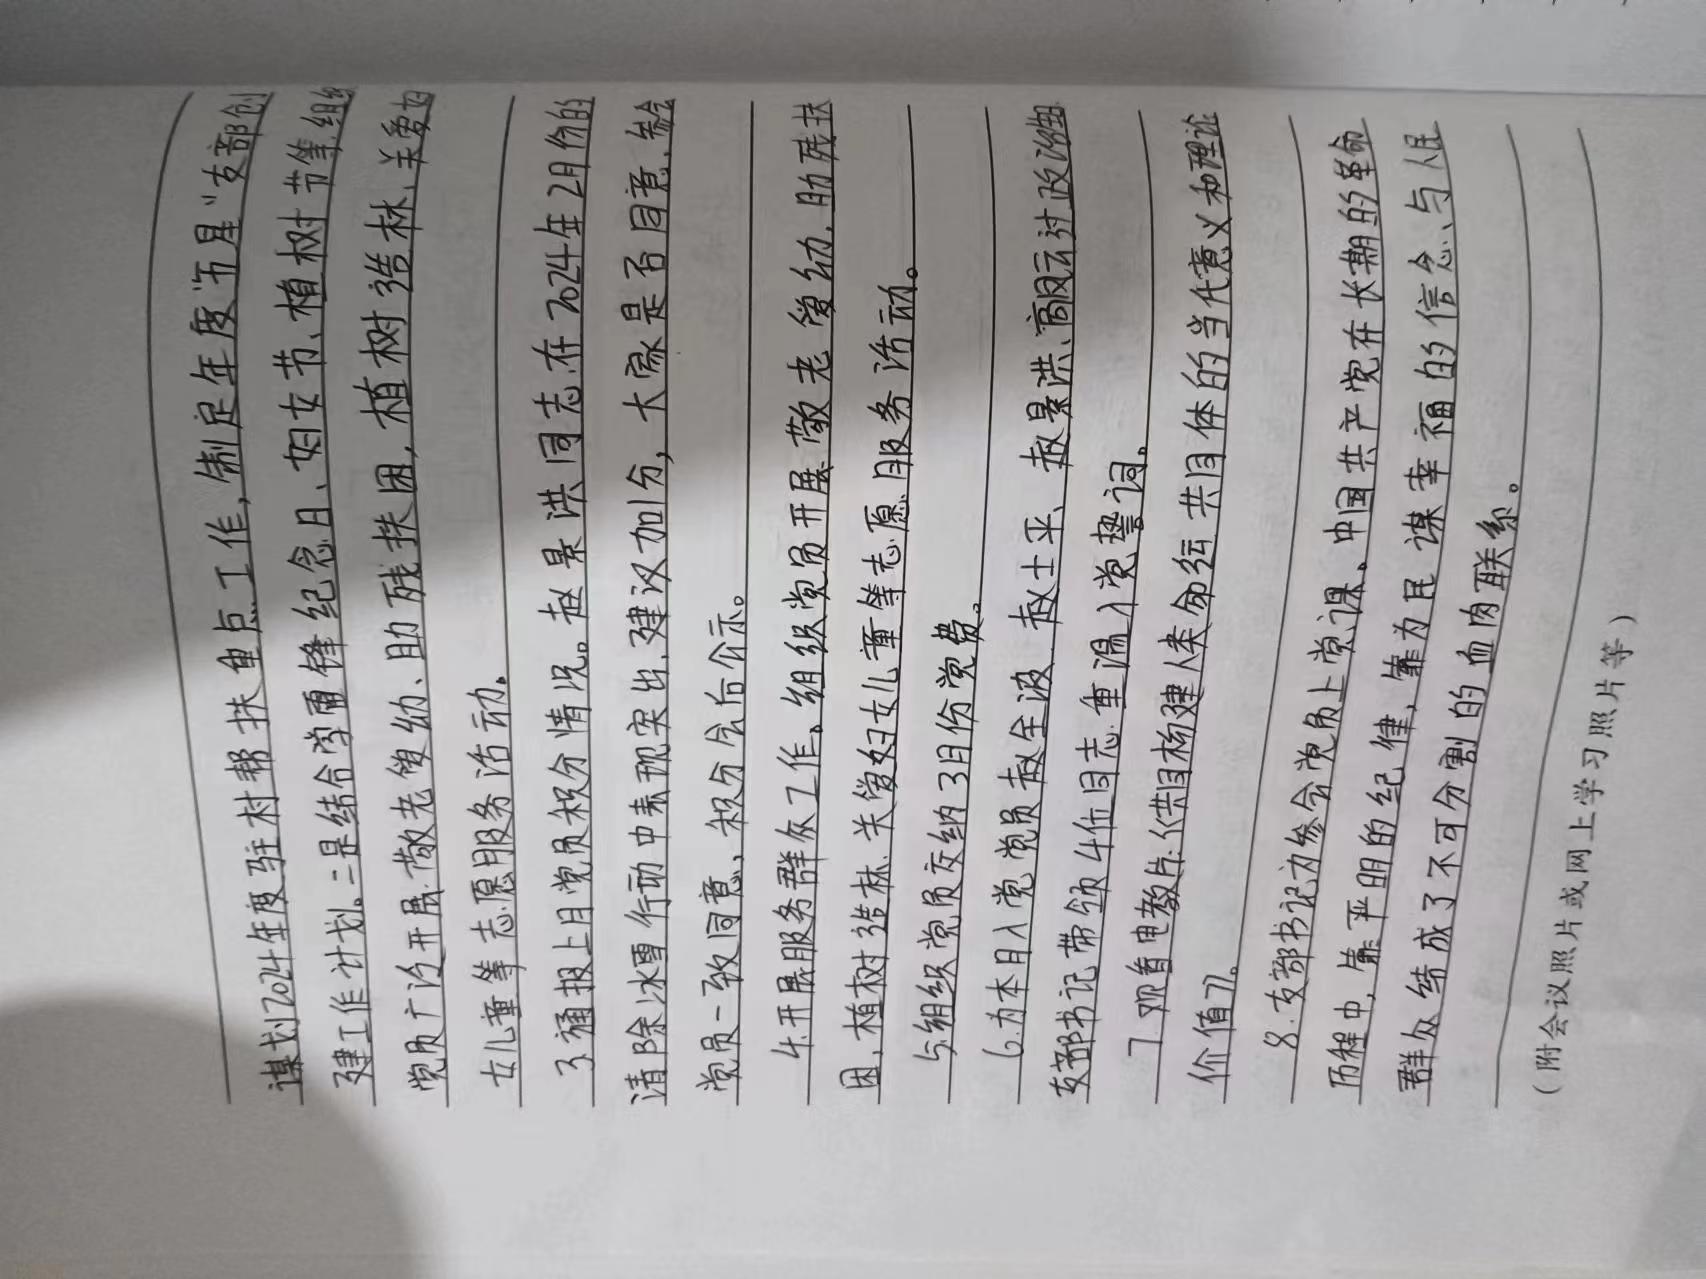 谋划2024年度驻村帮扶重点工作,制定年度"五星"支部创
建工作计划。二是结合学雷锋纪念日、妇女节、植树节等组织
党员广泛开展敬老爱幼、助残扶困,植树造林、关爱妇
女儿童等志愿服务活动。
3、通报上月党员积分情况。赵景洪同志在2024年2月份的
清除冰雪行动中表现突出,建议加1分,大家是否同意,参会
党员一致同意,积分会后公示。
4.开展服务群众工作。组织党员开展敬老爱幼,助残扶
困,植树造林,关爱妇女儿童等志愿服务活动。
5.组织党员交纳3月份党费。
6.为本月入党党员赵全波、赵士平、赵景洪、高凤云过政治生日
支部书记带领4位同志重温入党誓词。
7.观看电教片:《共同构建人类命运共同体的当代意义和理论
价值》。
8.支部书记为参会党员上党课。中国共产党在长期的革命
历程中,靠严明的纪律,靠为民谋幸福的信念,与人民
群众结成了不可分割的血肉联系。
(附会议照片或网上学习照片等)